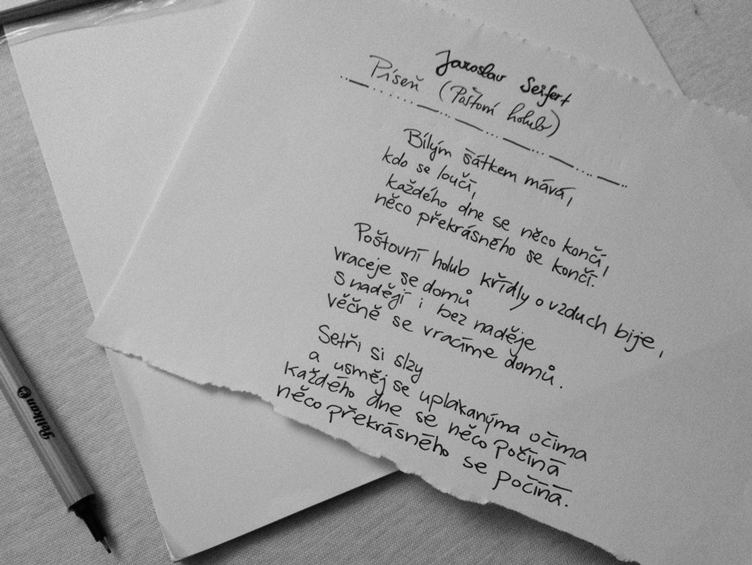 Jaroslav Seifert
Píseň (Poštovní holub)
Bílým šátkem mává,
kdo se loučí,
každého dne se něco končí,
něco překrásného se končí.
Poštovní holub křídly o vzduch bije,
vraceje se domů
s nadějí i bez naděje
věčně se vracíme domů.
Setři si slzy
a usměj se uplakanýma očima
každého dne se něco počíná
něco překrásného se počíná.
Pelikan